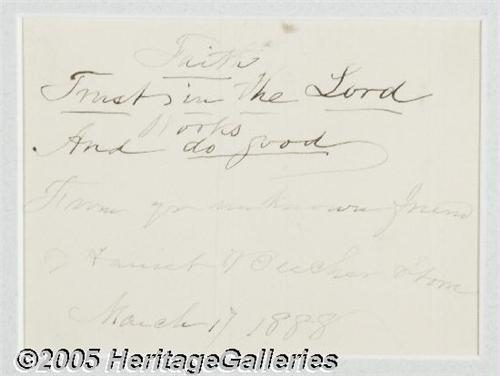 Faith
Trust in the Lord
Works
And do good
From yr unknown friend
Harriet Beecher Stowe
March 17 1888
©2005 HeritageGalleries